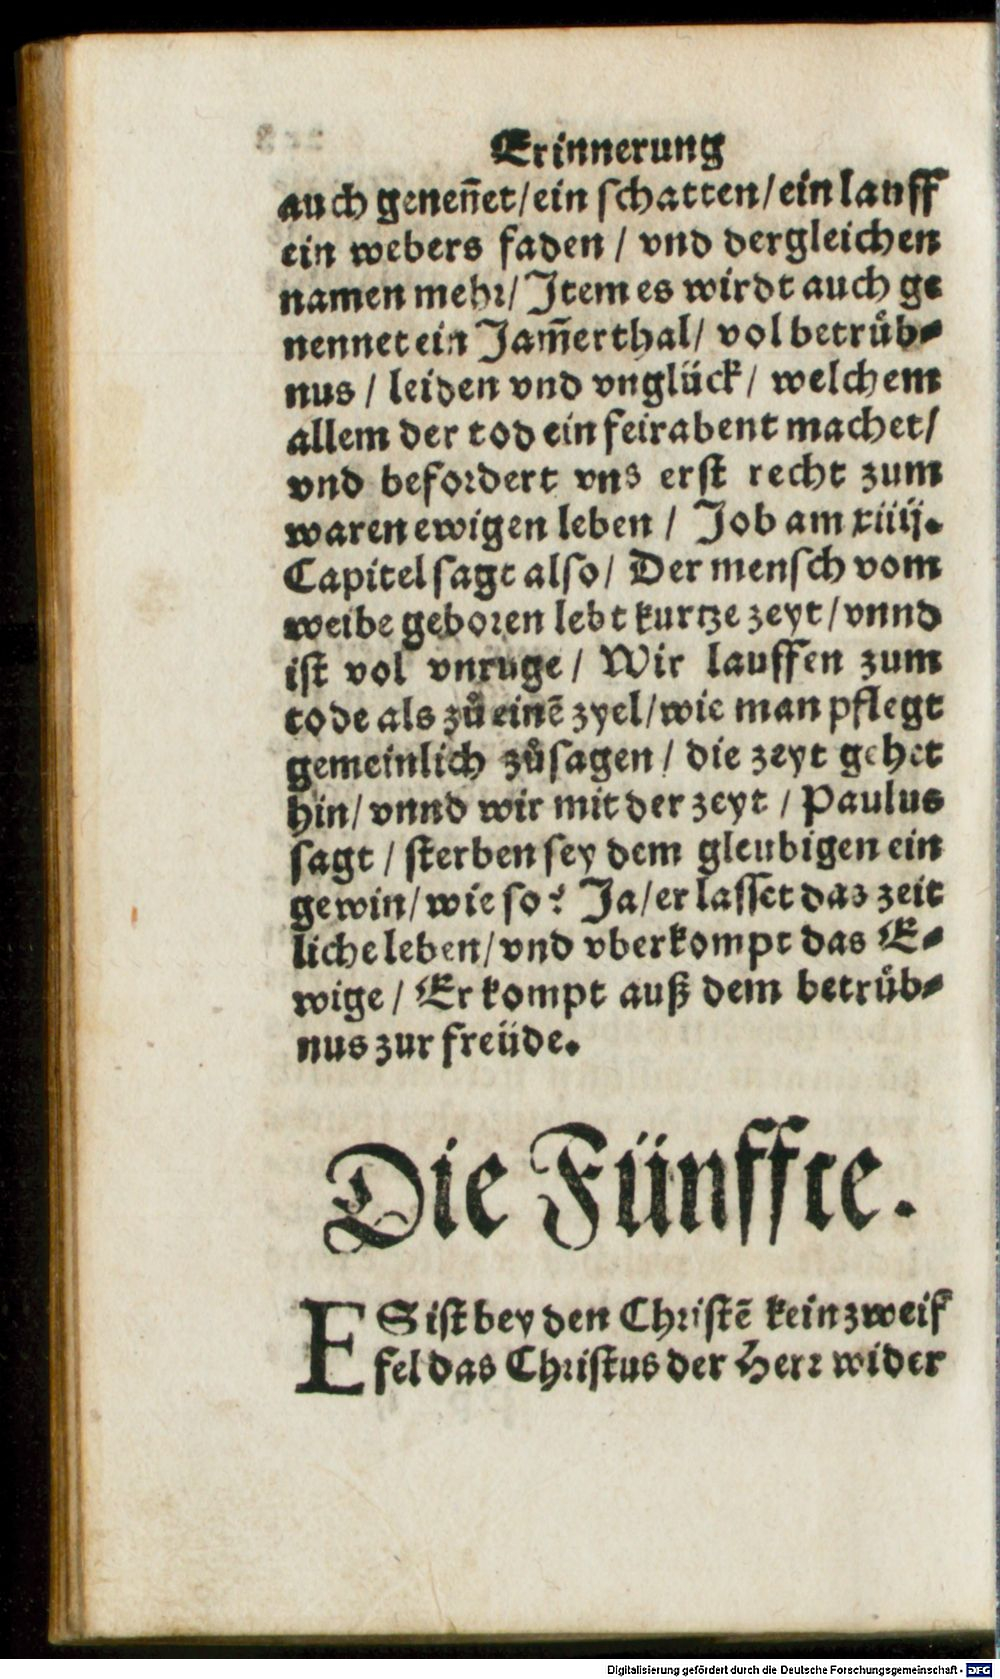 Erinnerung
auch geneñet/ein schatten/ein lauff
ein webers faden / vnd dergleichen
namen mehr/ Item es wirdt auch ge
nennet ein Jam̃erthal/ vol betruͤb⸗
nus / leiden vnd vnglück/ welchem
allem der tod ein feirabent machet/
vnd befordert vns erst recht zum
waren ewigen leben / Job am xiiij.
Capitel sagt also/ Der mensch vom
weibe geboren lebt kurtze zeyt/vnnd
ist vol vnruge / Wir lauffen zum
tode als zuͦ einē zyel/wie man pflegt
gemeinlich zuͦsagen / die zeyt gehet
hin/ vnnd wir mit der zeyt / Paulus
sagt / sterben sey dem gleubigen ein
gewin/wie so? Ja/er lasset das zeit
liche leben/vnd vberkompt das E⸗
wige / Er kompt auß dem betruͤb⸗
nus zur freüde.
Die Fünffte.
ES ist bey den Christē kein zweif
fel das Christus der Herr wider
Digitalisierung gefördert durch die Deutsche Forschungsgemeinschaft - DFG